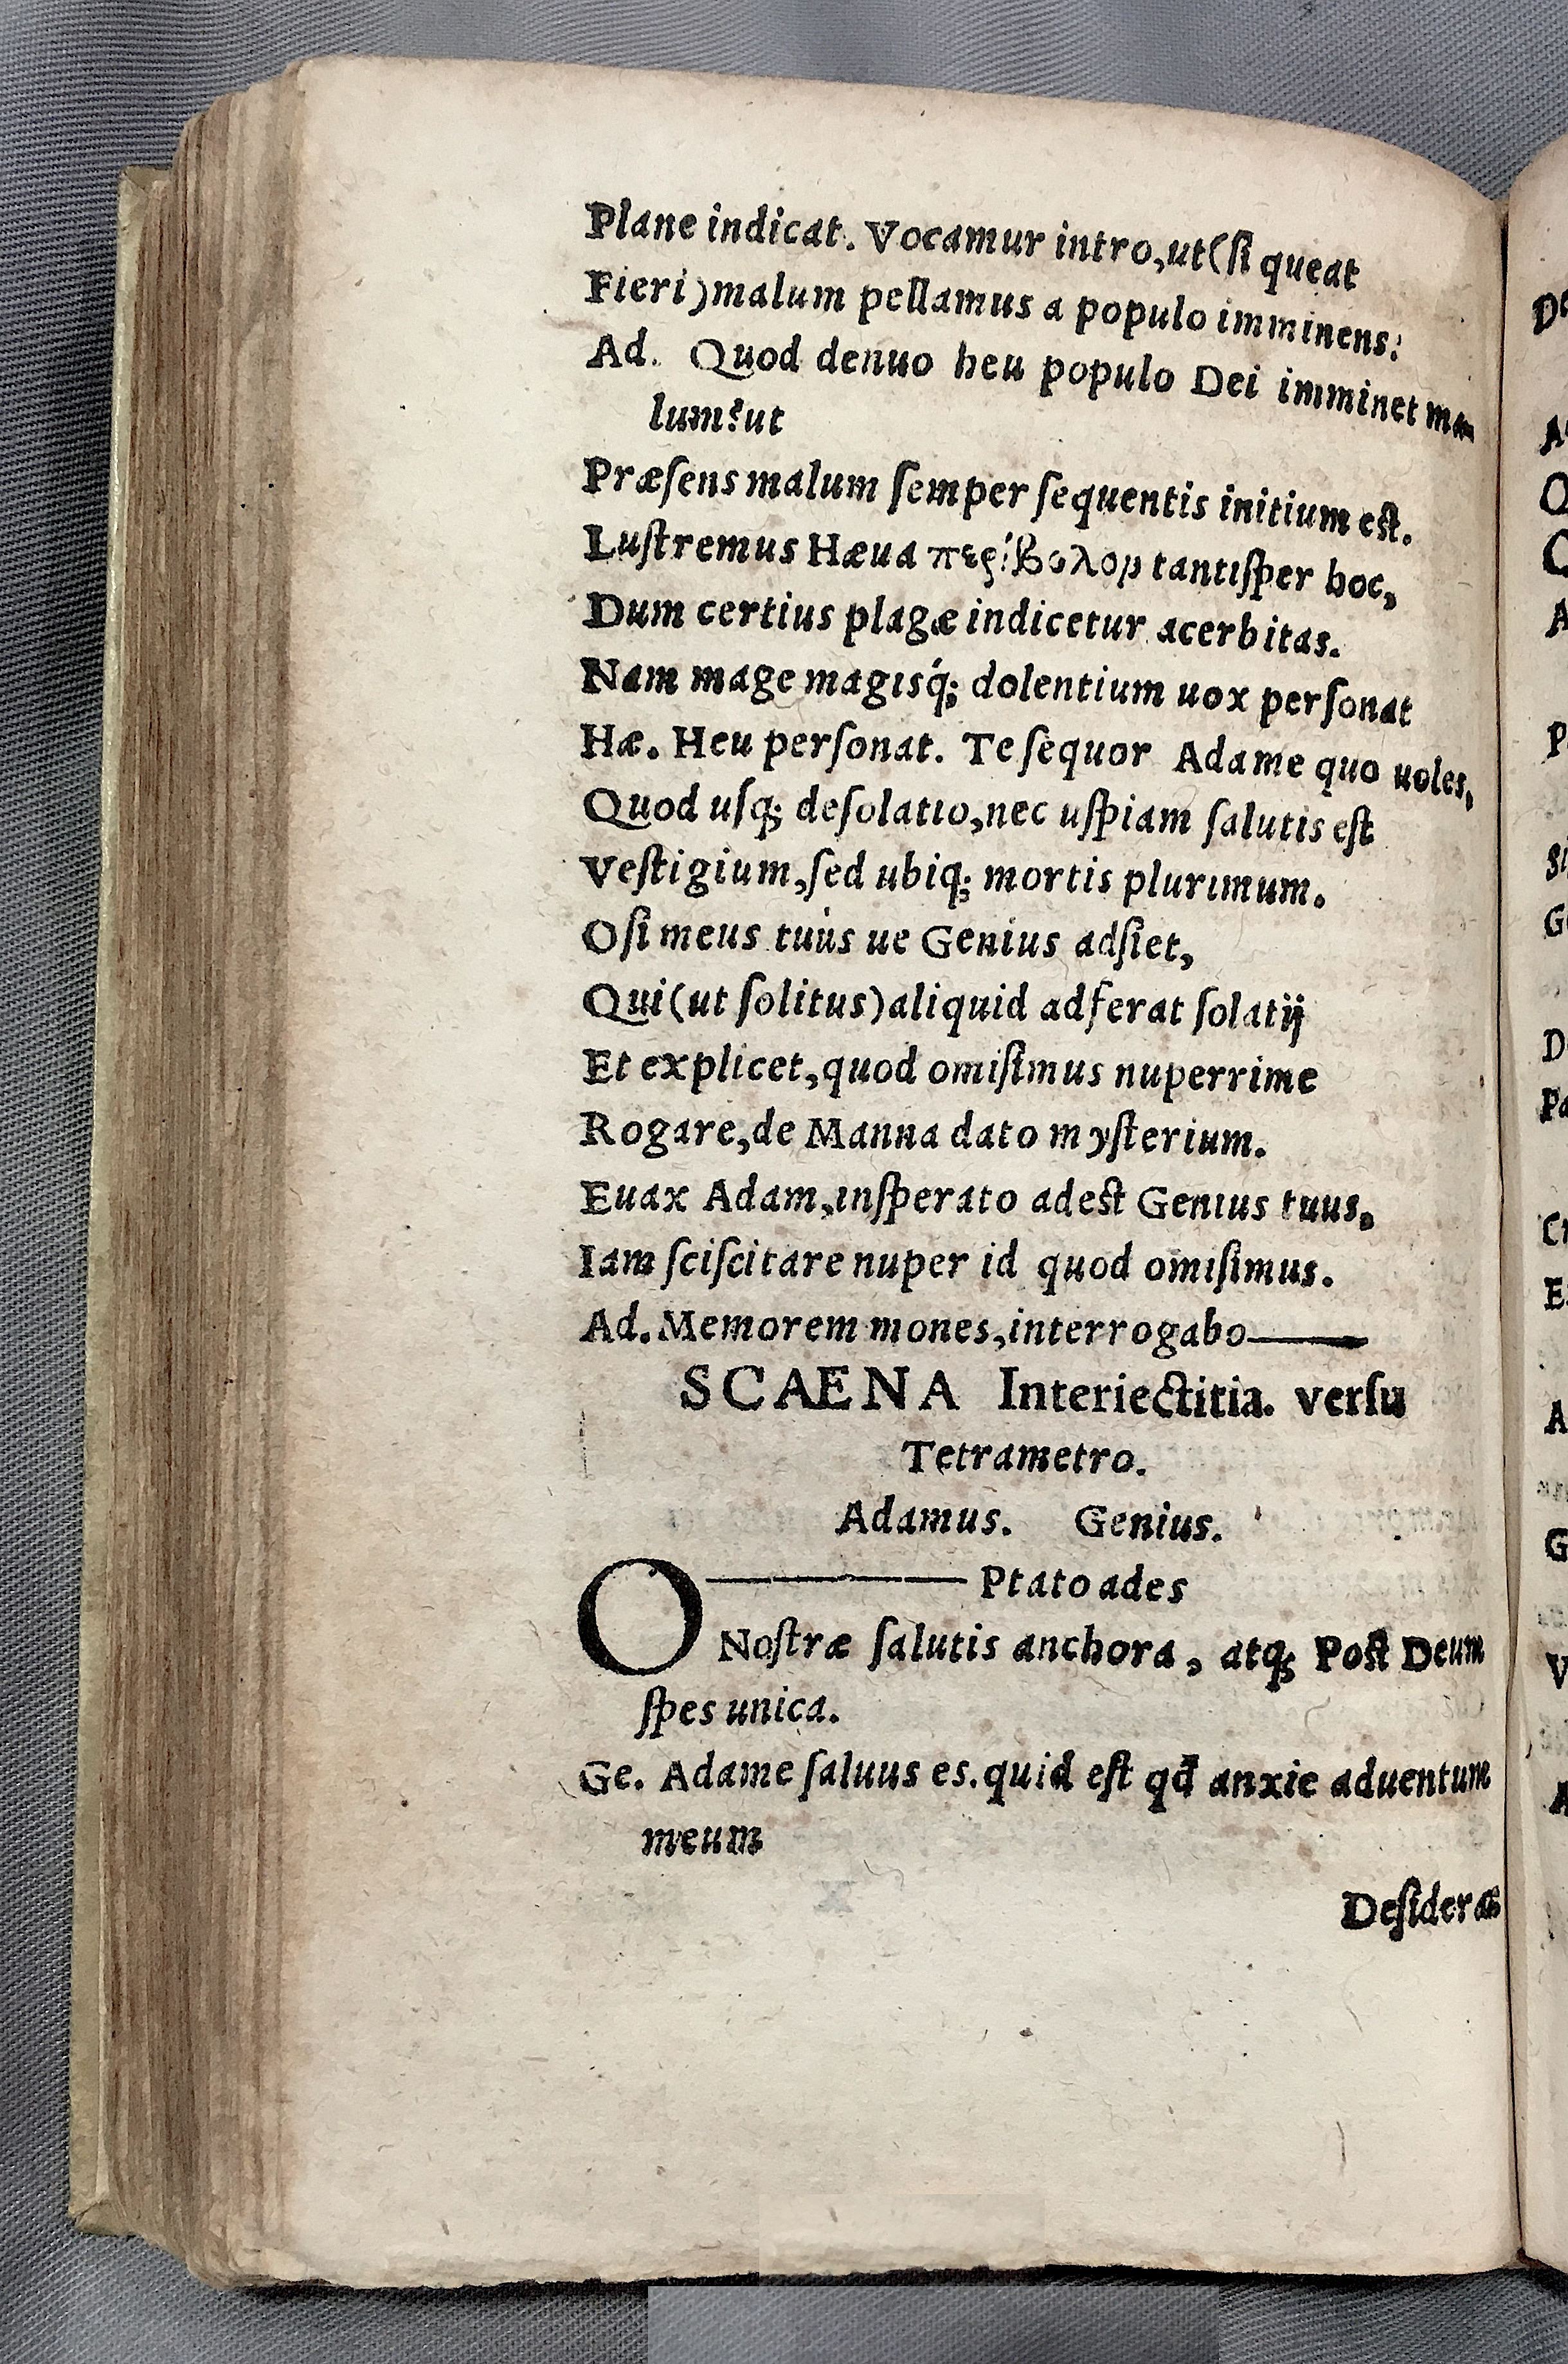 Plane indicat. Vocamur intro,ut(ſi queat
Fieri)malum pellamus a populo imminens:
Ad. Quod denuo heu populo Dei imminet ma-
lum?ut
Præſens malum ſemper ſequentis initium est.
Luſtremus Hæua περίβολον tantiſper hoc,
Dum certius plagæ indicetur acerbitas.
Nam mage magisq́; dolentium uox perſonat
Hæ. Heu perſonat. Te ſequor Adame quo uoles,
Quod uſq; deſolatio,nec uſpiam ſalutis eſt
Veſtigium,ſed ubiq; mortis plurimum.
O ſi meus tuùs ue Genius adſiet,
Qui(ut ſolitus)aliquid adferat ſolatij
Et explicet,quod omiſimus nuperrime
Rogare,de Manna dato myſterium.
Euax Adam,inſperato adest Genius tuus.
Iam ſciſcitare nuper id quod omiſimus.
Ad. Memorem mones,interrogabo———
SCAENA Interiectitia. verſu
Tetrametro.
Adamus. Genius.
O——————Ptato ades
Noſtræ ſalutis anchora, atq; Post Deum
ſpes unica.
Ge. Adame ſaluus es.quid eſt qđ anxie aduentum
meum
Deſideras